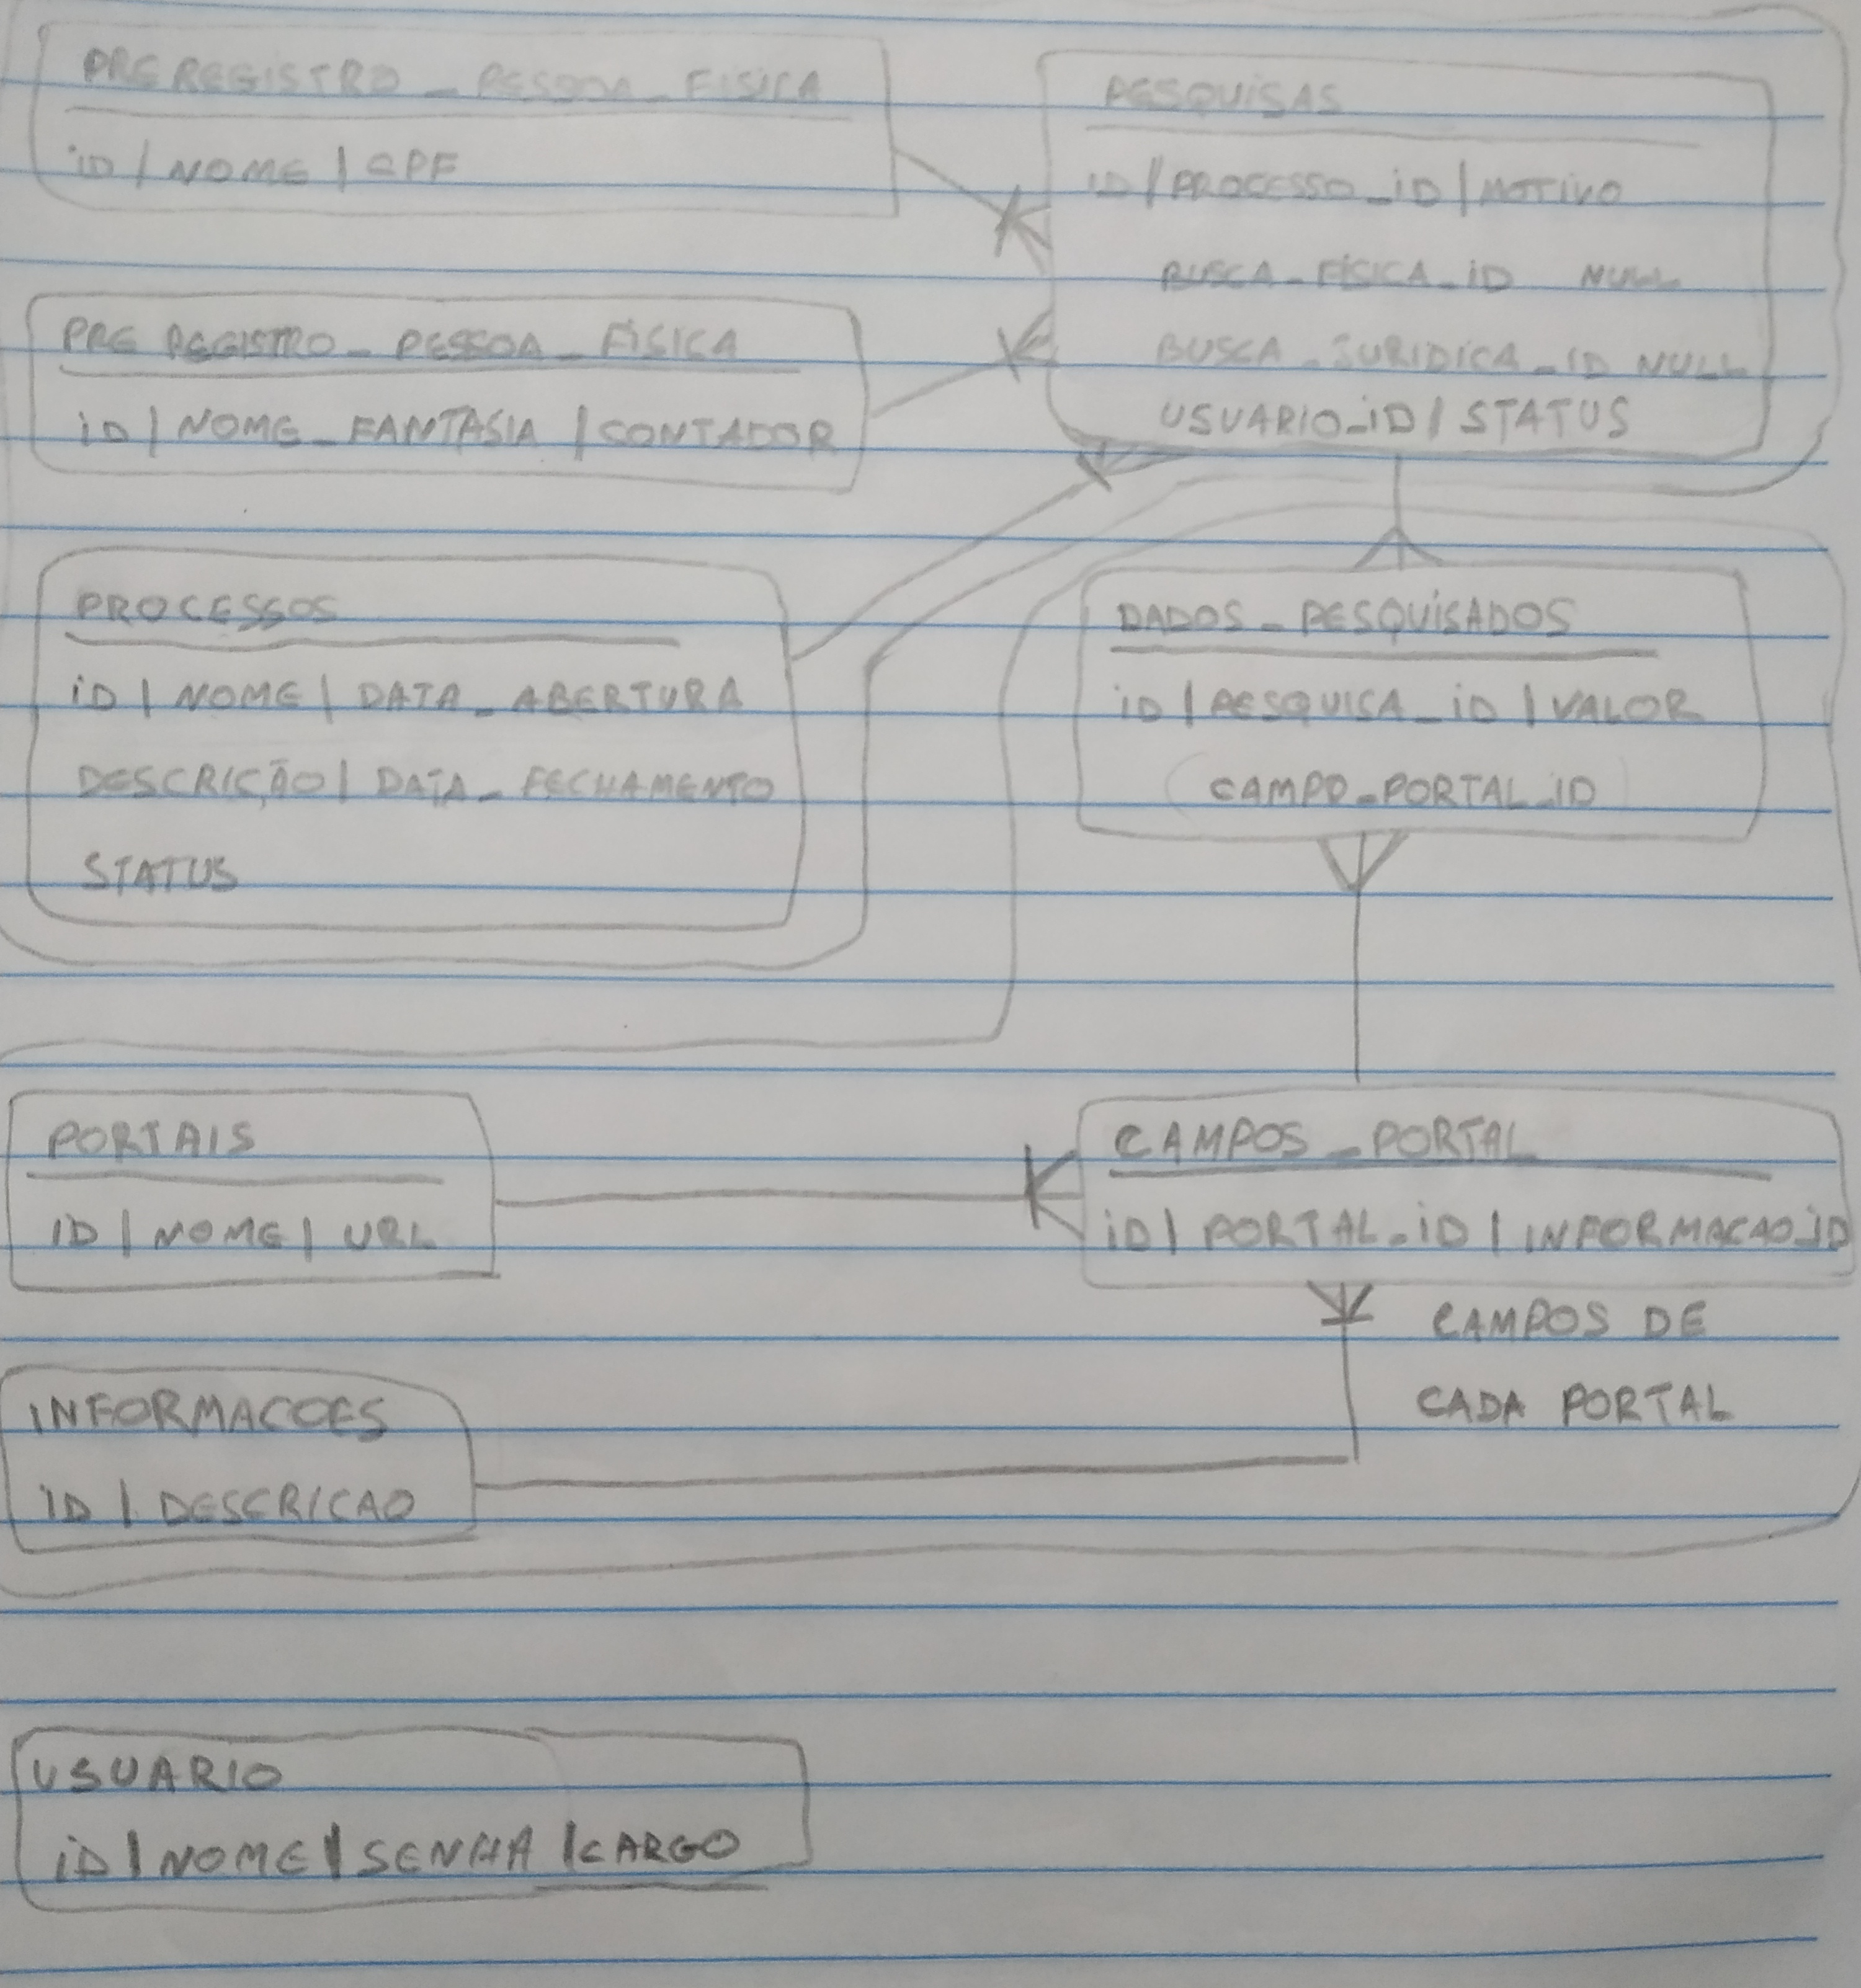 PRE REGISTRO_PESSOA_FISICA
iD | NOME | CPF
PESQUISAS
iD | PROCESSO_iD | MOTIVO
BUSCA_FÍSICA_iD NULL
BUSCA_JURIDICA_ID NULL
USUARIO_iD | STATUS
PRE REGISTRO_PESSOA_FÍSICA
iD | NOME_FANTASIA | CONTADOR
PROCESSOS
iD | NOME | DATA_ABERTURA
DESCRIÇÃO | DATA_FECHAMENTO
STATUS
DADOS_PESQUISADOS
iD | PESQUISA_iD | VALOR
CAMPO_PORTAL_ID
PORTAIS
ID | NOME | URL
CAMPOS_PORTAL
iD | PORTAL_iD | INFORMACAO_iD
CAMPOS DE
CADA PORTAL
INFORMACOES
ID | DESCRICAO
USUARIO
iD | NOME | SENHA | CARGO